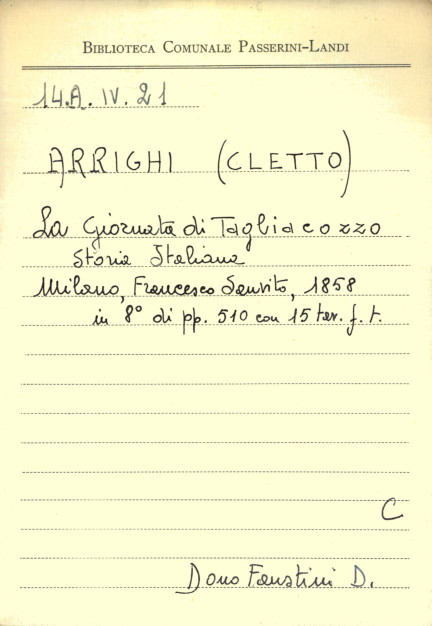 BIBLIOTECA COMUNALE PASSERINI-LANDI
14.A. IV. 21
ARRIGHI (CLETTO)
La Giornata di Tagliacozzo
Storia Italiana
Milano, Francesco Sanvito, 1858
in 8° di pp. 510 con 15 tav. f. t.
C
Dono Faustini D.